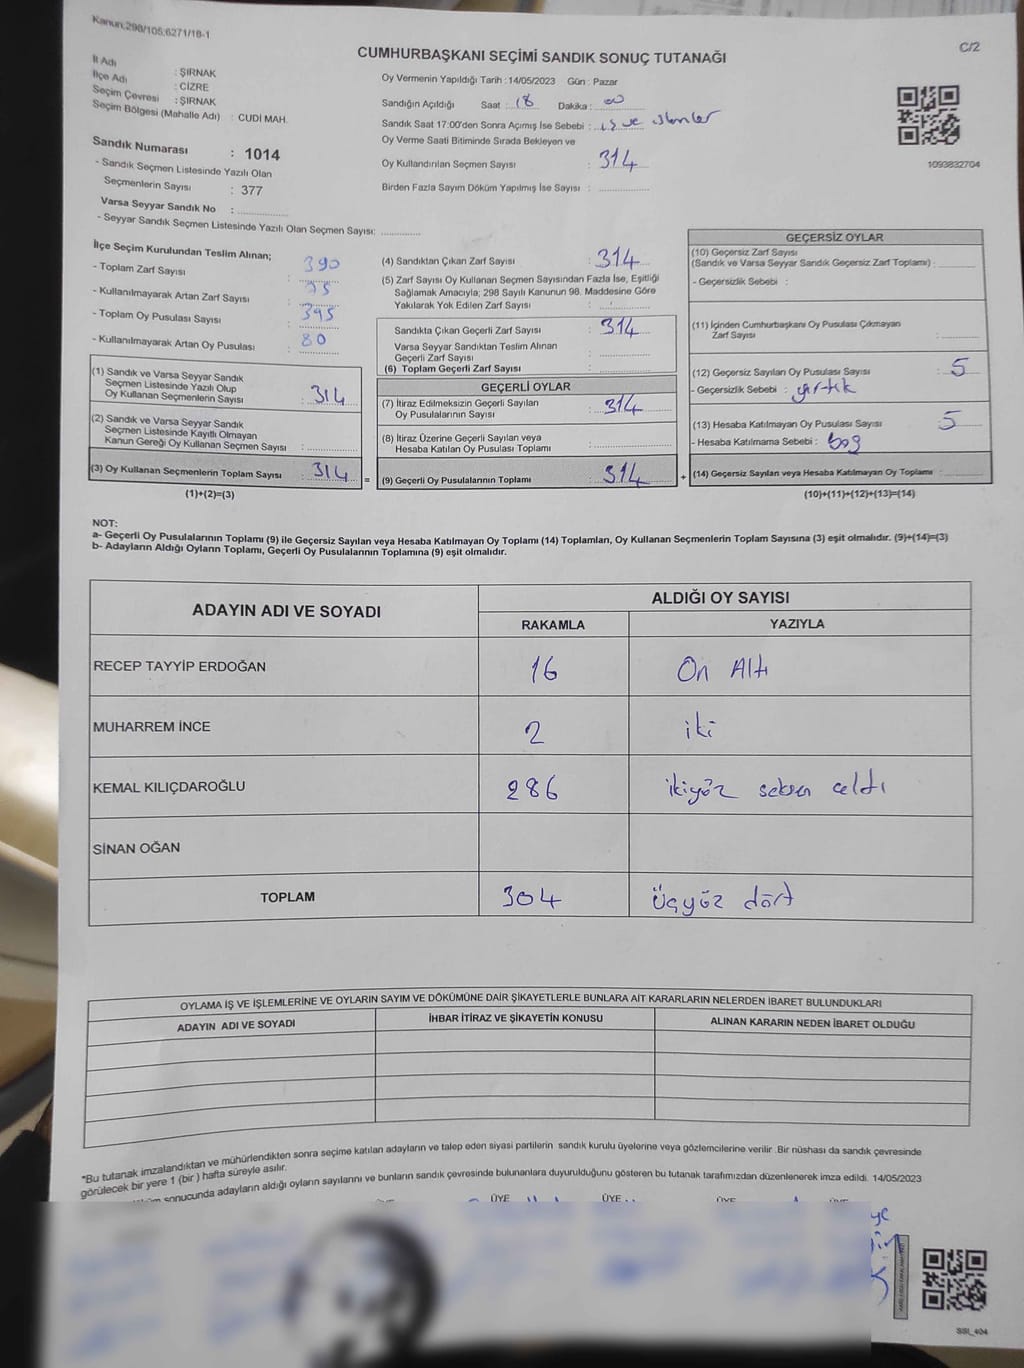 Kanun:298/105;6271/18-1
C/2
CUMHURBAŞKANI SEÇİMİ SANDIK SONUÇ TUTANAĞI
İl Adı : ŞIRNAK
İlçe Adı : CİZRE
Seçim Çevresi : ŞIRNAK
Seçim Bölgesi (Mahalle Adı) : CUDİ MAH.
Sandık Numarası : 1014
- Sandık Seçmen Listesinde Yazılı Olan
Seçmenlerin Sayısı : 377
Varsa Seyyar Sandık No :
- Seyyar Sandık Seçmen Listesinde Yazılı Olan Seçmen Sayısı:
Oy Vermenin Yapıldığı Tarih : 14/05/2023 Gün : Pazar
Sandığın Açıldığı Saat : 18 Dakika : 00
Sandık Saat 17:00'den Sonra Açımış İse Sebebi : iş ve işlemler
Oy Verme Saati Bitiminde Sırada Bekleyen ve
Oy Kullandırılan Seçmen Sayısı : 314
Birden Fazla Sayım Döküm Yapılmış İse Sayısı :
1093832704
İlçe Seçim Kurulundan Teslim Alınan;
- Toplam Zarf Sayısı : 390
- Kullanılmayarak Artan Zarf Sayısı :
- Toplam Oy Pusulası Sayısı : 395
- Kullanılmayarak Artan Oy Pusulası : 80
(1) Sandık ve Varsa Seyyar Sandık
Seçmen Listesinde Yazılı Olup
Oy Kullanan Seçmenlerin Sayısı : 314
(2) Sandık ve Varsa Seyyar Sandık
Seçmen Listesinde Kayıtlı Olmayan
Kanun Gereği Oy Kullanan Seçmen Sayısı :
(3) Oy Kullanan Seçmenlerin Toplam Sayısı : 314 =
(1)+(2)=(3)
(4) Sandıktan Çıkan Zarf Sayısı : 314
(5) Zarf Sayısı Oy Kullanan Seçmen Sayısından Fazla İse, Eşitliği
Sağlamak Amacıyla; 298 Sayılı Kanunun 98. Maddesine Göre
Yakılarak Yok Edilen Zarf Sayısı :
Sandıkta Çıkan Geçerli Zarf Sayısı : 314
Varsa Seyyar Sandıktan Teslim Alınan
Geçerli Zarf Sayısı :
(6) Toplam Geçerli Zarf Sayısı :
GEÇERLİ OYLAR
(7) İtiraz Edilmeksizin Geçerli Sayılan
Oy Pusulalarının Sayısı : 314
(8) İtiraz Üzerine Geçerli Sayılan veya
Hesaba Katılan Oy Pusulası Toplamı :
(9) Geçerli Oy Pusulalarının Toplamı : 314 +
GEÇERSİZ OYLAR
(10) Geçersiz Zarf Sayısı
(Sandık ve Varsa Seyyar Sandık Geçersiz Zarf Toplamı) :
- Geçersizlik Sebebi :
(11) İçinden Cumhurbaşkanı Oy Pusulası Çıkmayan
Zarf Sayısı :
(12) Geçersiz Sayılan Oy Pusulası Sayısı : 5
- Geçersizlik Sebebi : yırtık
(13) Hesaba Katılmayan Oy Pusulası Sayısı : 5
- Hesaba Katılmama Sebebi : boş
(14) Geçersiz Sayılan veya Hesaba Katılmayan Oy Toplamı :
(10)+(11)+(12)+(13)=(14)
NOT:
a- Geçerli Oy Pusulalarının Toplamı (9) ile Geçersiz Sayılan veya Hesaba Katılmayan Oy Toplamı (14) Toplamları, Oy Kullanan Seçmenlerin Toplam Sayısına (3) eşit olmalıdır. (9)+(14)=(3)
b- Adayların Aldığı Oyların Toplamı, Geçerli Oy Pusulalarının Toplamına (9) eşit olmalıdır.
ADAYIN ADI VE SOYADI
ALDIĞI OY SAYISI
RAKAMLA YAZIYLA
RECEP TAYYİP ERDOĞAN 16 On Altı
MUHARREM İNCE 2 iki
KEMAL KILIÇDAROĞLU 286 ikiyüz seksen altı
SİNAN OĞAN
TOPLAM 304 üçyüz dört
OYLAMA İŞ VE İŞLEMLERİNE VE OYLARIN SAYIM VE DÖKÜMÜNE DAİR ŞİKAYETLERLE BUNLARA AİT KARARLARIN NELERDEN İBARET BULUNDUKLARI
ADAYIN ADI VE SOYADI İHBAR İTİRAZ VE ŞİKAYETİN KONUSU ALINAN KARARIN NEDEN İBARET OLDUĞU
*Bu tutanak imzalandıktan ve mühürlendikten sonra seçime katılan adayların ve talep eden siyasi partilerin sandık kurulu üyelerine veya gözlemcilerine verilir .Bir nüshası da sandık çevresinde
görülecek bir yere 1 (bir ) hafta süreyle asılır.
sonucunda adayların aldığı oyların sayılarını ve bunların sandık çevresinde bulunanlara duyurulduğunu gösteren bu tutanak tarafımızdan düzenlenerek imza edildi. 14/05/2023
ÜYE ÜYE ÜYE ÜYE
SSI_404